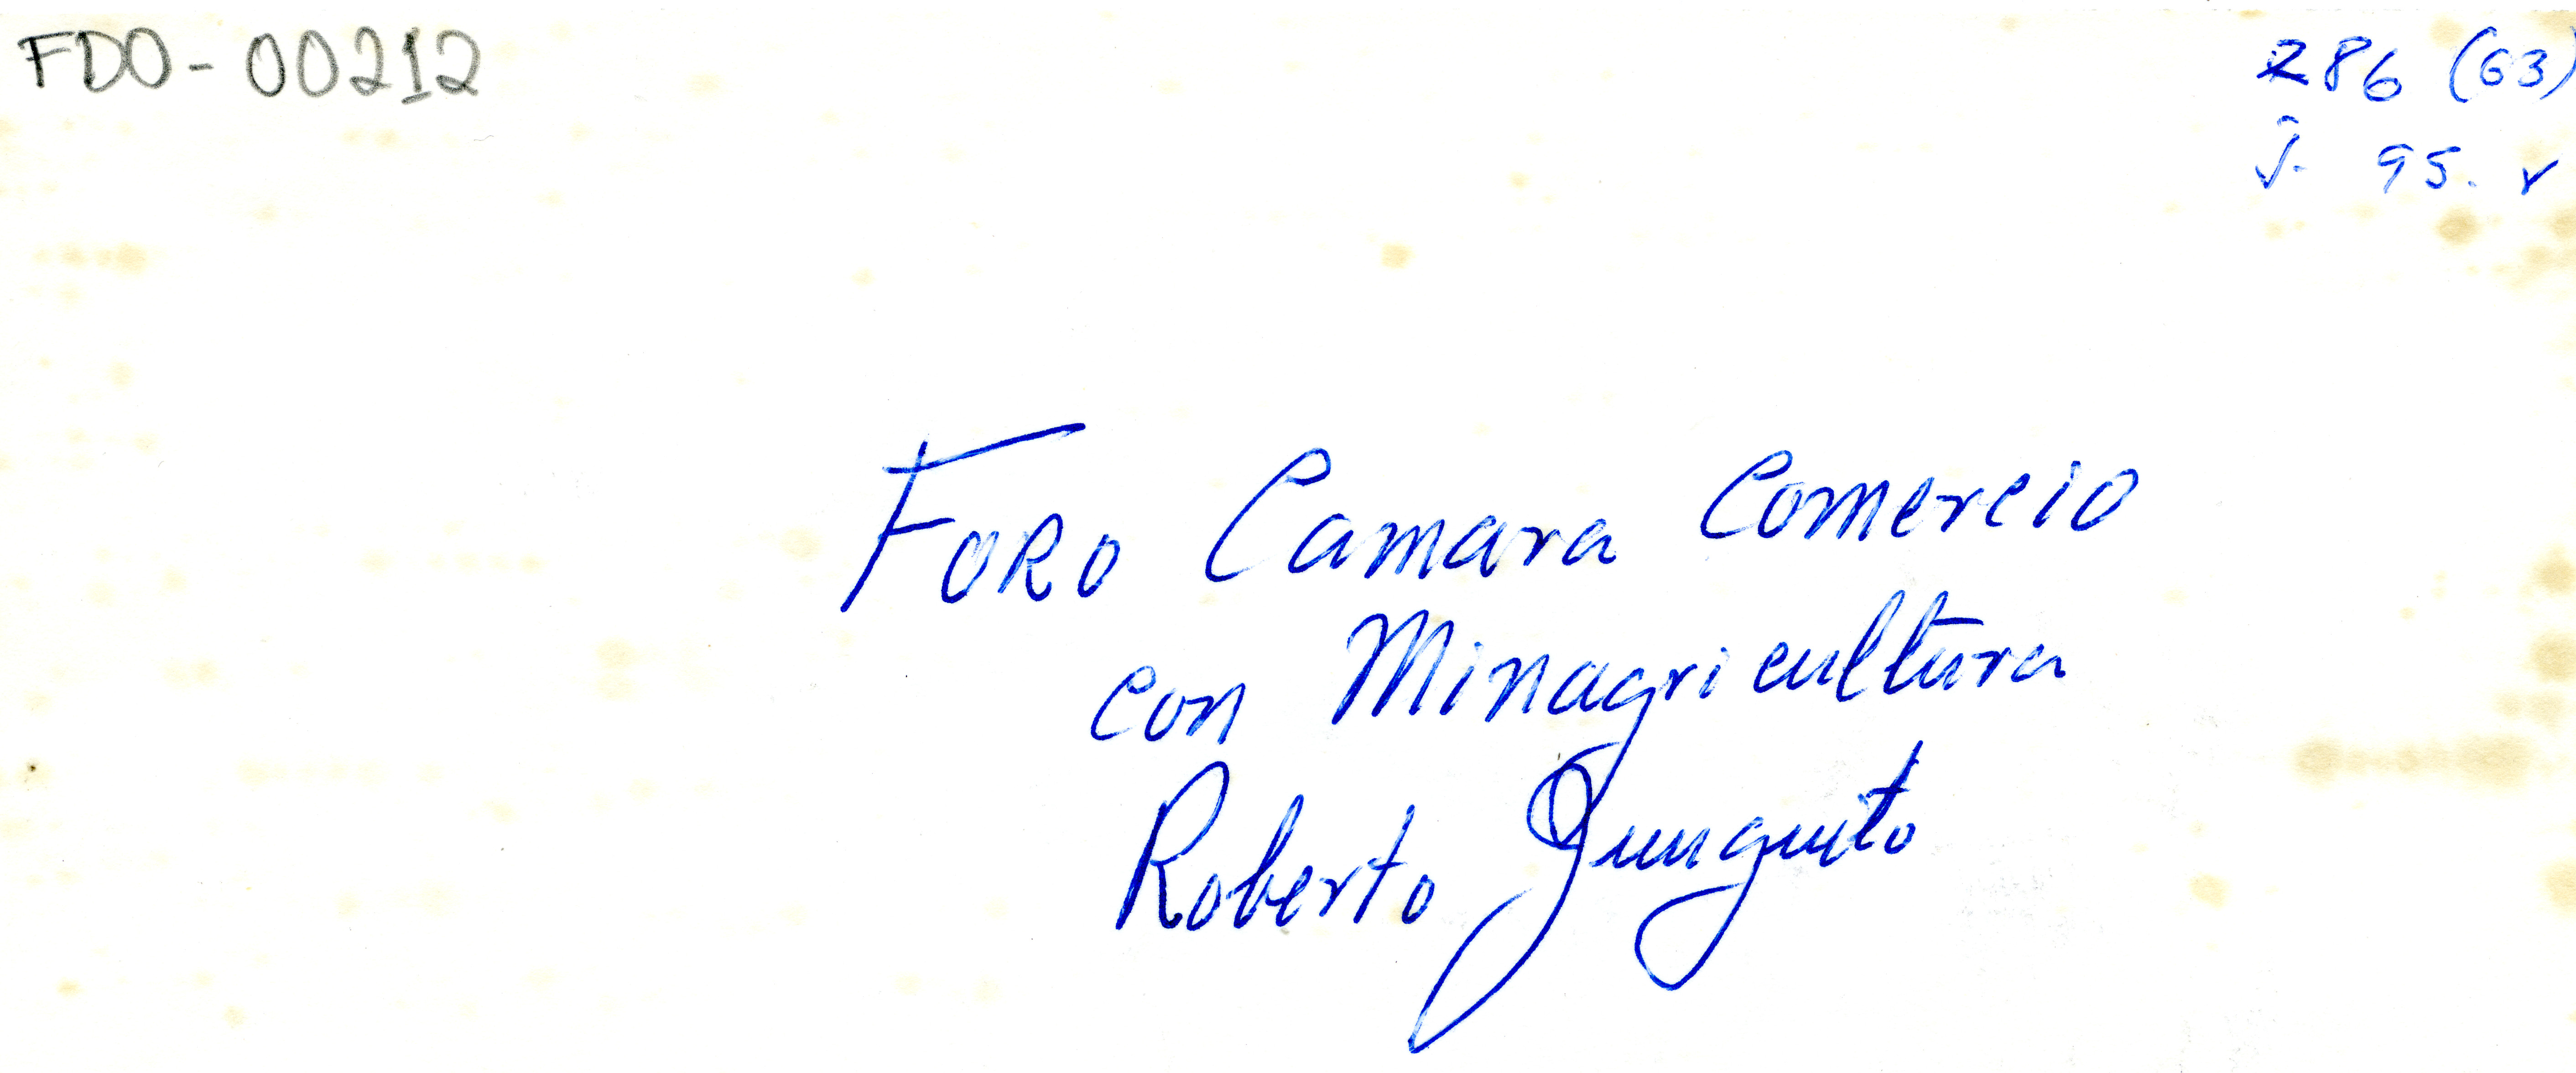 FDO-00212
286 (63)
J. 95. r
Foro Camara Comercio
con Minagricultura
Roberto Junguito